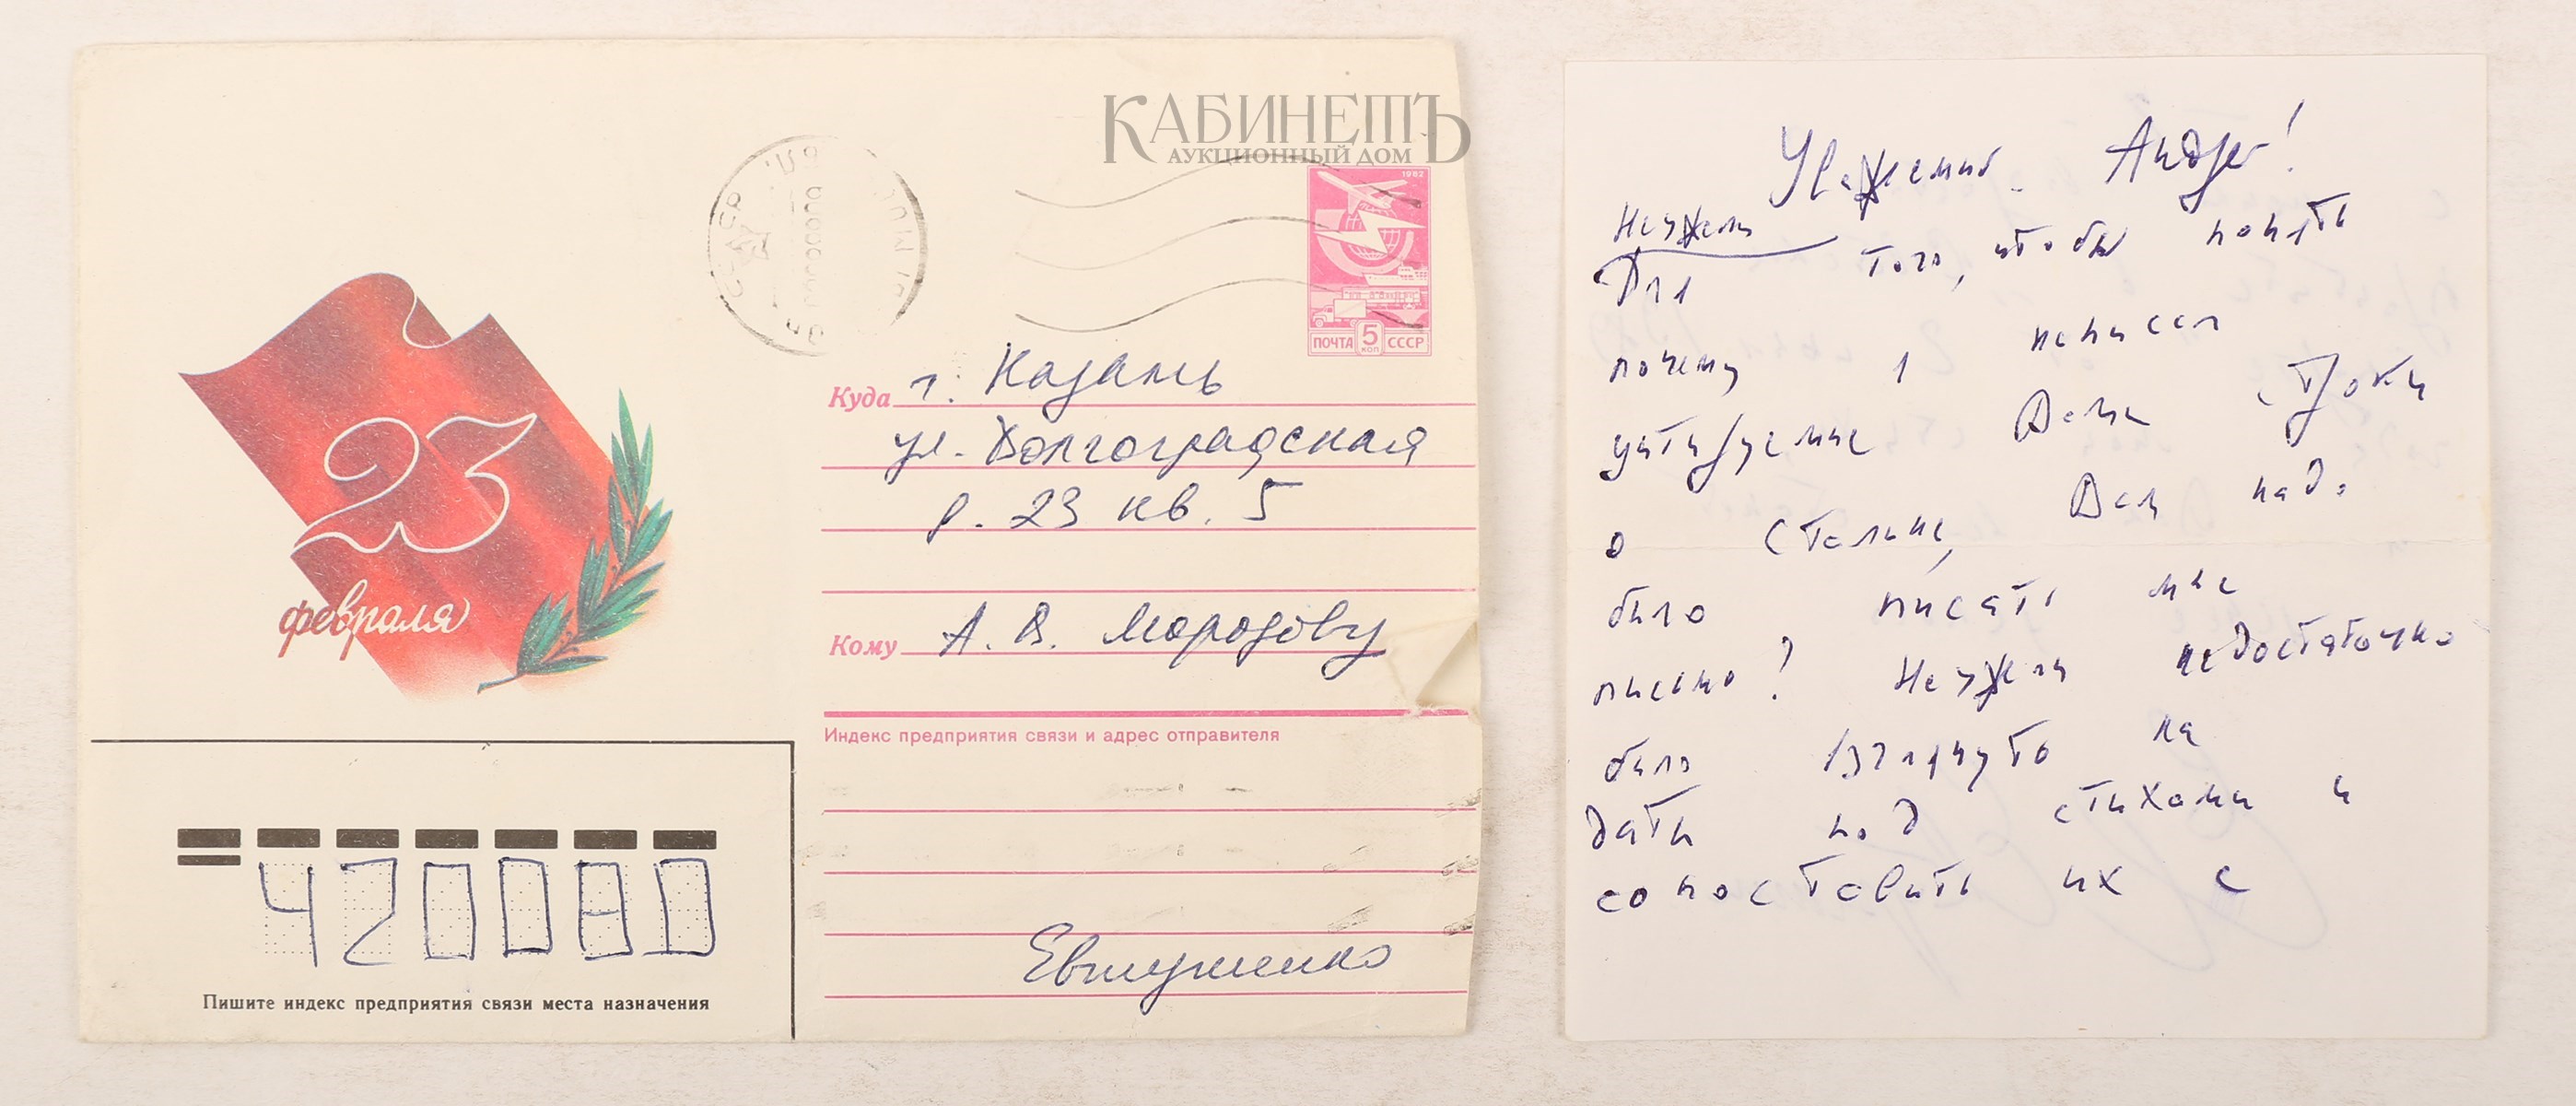 КАБИНЕТЪ
АУКЦИОННЫЙ ДОМ
СССР
1982
ПОЧТА 5 КОП СССР
23
февраля
Куда г. Казань
ул. Волгоградская
д. 23 кв. 5
Кому А. В. Морозову
Индекс предприятия связи и адрес отправителя
Евтушенко
420080
Пишите индекс предприятия связи места назначения
Уважаемый Андрей!
Неужели
Для того, чтобы понять
почему я написал
цитируемые Вами строки
о Сталине, Вам надо
было писать мне
письмо? Неужели недостаточно
было взглянуть на
даты под стихами и
сопоставить их с